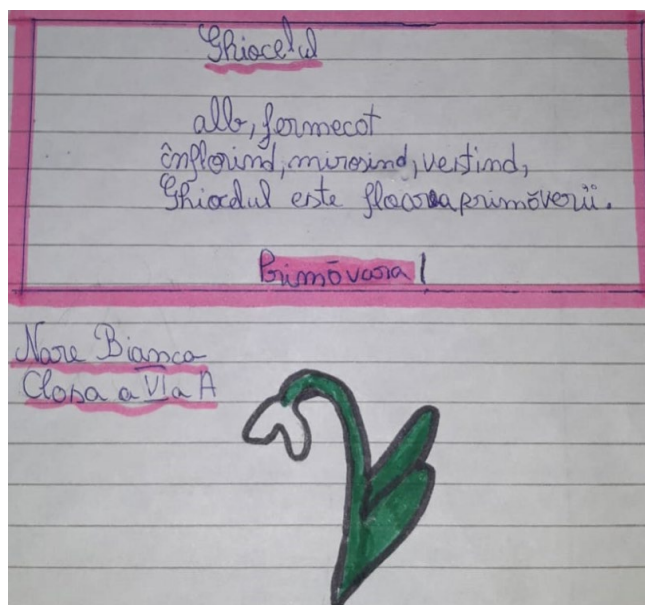 Ghiocelul
alb, fermecat
înflorind, mirosind, vestind,
Ghiocelul este floarea primăverii.
Primăvara!
Nare Bianca
Clasa a VI a A